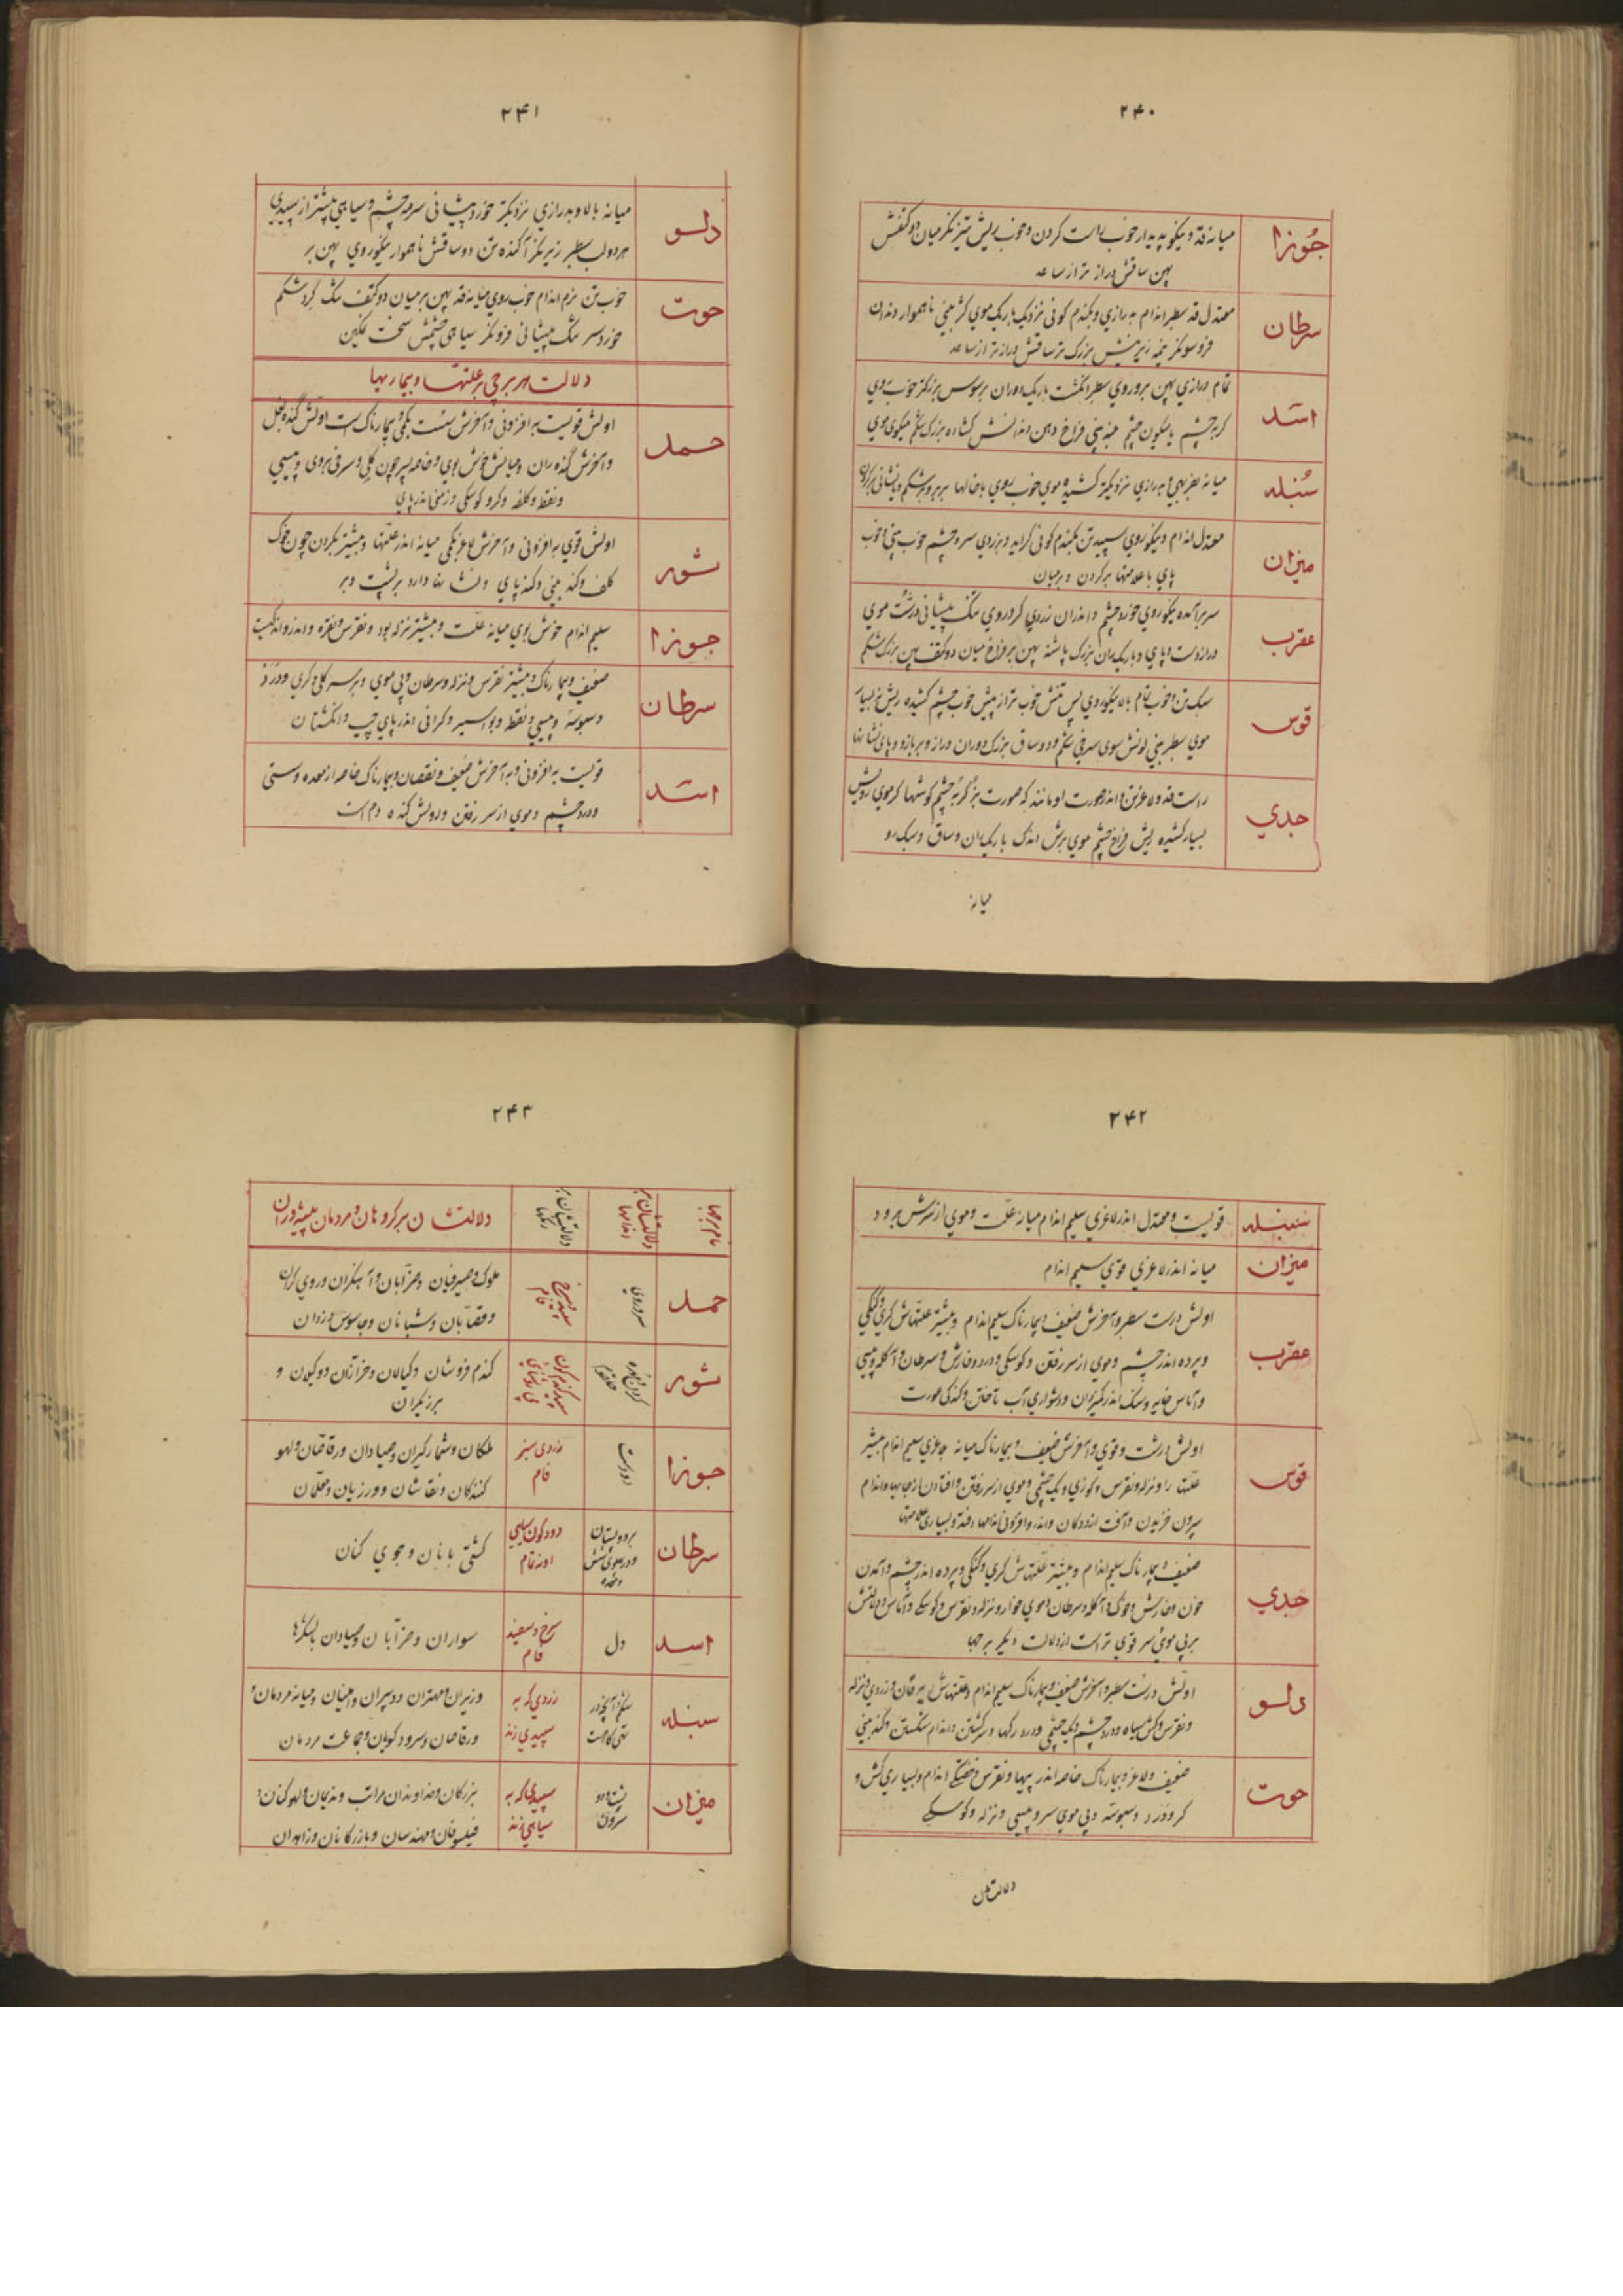 ۲۴۰
جوزا
میانه قد و نیکو پدیدار خوب راست کردن و خوب ریش تیز نکر میان دو کتفش
پهن ساقش دراز تر از ساعد
سرطان
معتدل قد سطبر اندام به درازی و بکندم کونی نزدیک باریک موی کژ بینی ناهموار دندان
فروسو نکر نیمهٔ زیرینش بزرک تر ساقش دراز تر از ساعد
اسد
تمام درازی پهن بر و روی سطبر انکشت باریک دوران برسوس بزرکتر خوب روی
کربه چشم میکون چشم بینی فراخ دهن دندانش کشاده بزرک شکم میکون موی
سُنبله
میانه بدرازی نزدیکتر کشیده موی خوب روی با خالها بر بر و بر شکم و نشانی بر کردن
میزان
معتدل اندام و نیکو روی سپید تن بکندم کونی کراید و بزردی سر و چشم خوب بینی و خوب
پای با علامتها بر کردن و بر میان
عقرب
سر برآمده نیکو روی خورد چشم و اندران زردی کرد روی تنک پیشانی درشت موی
دراز دست و پای و باریک ران بزرک پاشنه پهن بر فراخ میان دو کتف پهن بزرک شکم
قوس
سبک تن و خوب تمام بالا نیکو روی پس تنش خوب تر از پیش خوب چشم کشیده ریش نه بسیار
موی سطبر بینی لونش سوی سرخی شکم و دو ساق بزرک و دوران دراز و بر بازو و پای نشانها
جدي
راست قد و لاغر تن اندر صورت او مانند که صورت بز کربه چشم کوشها کرموی رویش
بسیار کشیده ریش فراخ چشم موی برش اندک باریک ران و ساق و سبک رو
میانه
۲۴۱
دلو
میانه بالا و بدرازی نزدیکتر خورد پیشانی سرمه چشم و سیاهی بیشتر از سپیدی
هر دو لب سطبر زیر نکر آکنده تن دو ساقش ناهموار نیکو روی پهن بر
حوت
خوب تن نرم اندام خوب روی میانه قد پهن بر میان دو کتف تنک کرد شکم
خورد سر تنک پیشانی فرو نکر سیاهی چشمش سخت نمکین
دلالت هر برجی بر علّتها و بیماریها
حمل
اولش قویست به افزونی و آخرش سست بکمی و بیمارناک است اولش کنده بغل
و آخرش کنده ران و میانش خوش بوی و خاصه بسر چون کلی و سرخی بروی و پیسی
و نقط و کلفه و کرو کوسکی و زمنی اندر پای
ثور
اولش قوی به افزونی و آخرش لاغر بکمی میانه اندر علّتها و بیشتر بکردن چون خوک
کلف و کند بینی و کند پای و نشانها دارد بر پشت و بر
جوزا
سلیم اندام خوش بوی میانه علّت و بیشتر نزله بود و نقرس و نقره
سرطان
ضعیف و بیمارناک و بیشتر نقرس و نزله و سرطان و بی موی و بر سر کلی و کری و درد
و سبوسه و پیسی و نقط و بواسیر و کرانی اندر پای چپ و انکشتان
اسد
قویست به افزونی و به آخرش ضعیف و نقصان و بیمارناک خاصه از معده و سستی
و درد چشم و موی از سر رفتن و اولش کنده دم است
۲۴۲
سنبله
قویست و معتدل اندر لاغری سلیم اندام میانه علّت و موی از سرش برود
میزان
میانه اندر لاغری قوی سلیم اندام
عقرب
اولش درست سطبر و آخرش ضعیف و بیمارناک سلیم اندام و بیشتر علّتهاش کری و کنکی
و پرده اندر چشم و موی از سر رفتن و کوسکی و درد و خارش و سرطان و آکله و پیسی
و آماس خایه و سنک اندر کمیزدان و دشواری آب تاختن و کندکی عورت
قوس
اولش درشت و قوی و آخرش ضعیف و بیمارناک میانه بلاغری سلیم اندام بیشتر
علّتها را و نزله و نقرس و کوزی و یک چشمی و موی از سر رفتن و افتادن از جایها و اندام
بیرون خزیدن و آفت از ددکان و اندر افزونی اندامها افتد و بسیاری علامتها
جدي
ضعیف و بیمارناک سلیم اندام و بیشتر علّتهاش کری و کنکی و پرده اندر چشم و آمدن
خون و خارش و خوک و آکله و سرطان و موی خوار و نزله و نقرس و کوسکی و آماس و دلالتش
بر بی موی سر قوی تر است از دلالت دیکر برجها
دلو
اولش درشت سطبر و آخرش ضعیف و بیمارناک سلیم اندام و علّتهاش یرقان و زردی و نزله
و نقرس و کش سیاه و درد چشم و یک چشمی و درد رکها و سرکشتن و اندام شکستن و کند بینی
حوت
ضعیف و لاغر و بیمارناک خاصه اندر پیها و نقرس و خستکی اندام و بسیاری کش و
کر و درد و سبوسه و بی موی سر و پیسی و نزله و کوسکی
دلالتشان
۲۴۳
نام برجها
دلالتشان بر اندامها
دلالتشان بر رنکها
دلالتشان بر کروهان و مردمان پیشه وران
حمل
سر و روی
سپید و سرخ فام
ملوک و صیرفیان و ضرّابان و آهنکران و روی کران
و قصّابان و شبانان و جاسوس و دزدان
ثور
کردن و مهره حلقوم
کندم فروشان و کیالان و خرازان دوکیون و
برزیکران
جوزا
دو دست
زردی سبز فام
ملکان و شمارکیران و صیادان و رقّاصان و لهو
کنندکان و نقّاشان و ورزیان و معلّمان
سرطان
بر و پستان
و معده
دود کون سیاهی
کشتی بانان و جوی کنان
اسد
دل
سرخ و سفید فام
سواران و ضرّابان و صیادان باشکرها
سنبله
شکم و آنچه در
زردی که به
سپیدی زند
وزیران و مهتران و دبیران و امینان و میانه مردمان و
رقاصان و سرود کویان و جماعت مردمان
میزان
پشت و دو
سرون
سپیدی که به
سیاهی زند
بزرکان و خداوندان مراتب و ندیمان و لهو کنان و
فیلسوفان و مهندسان و بازرکانان و زاهدان